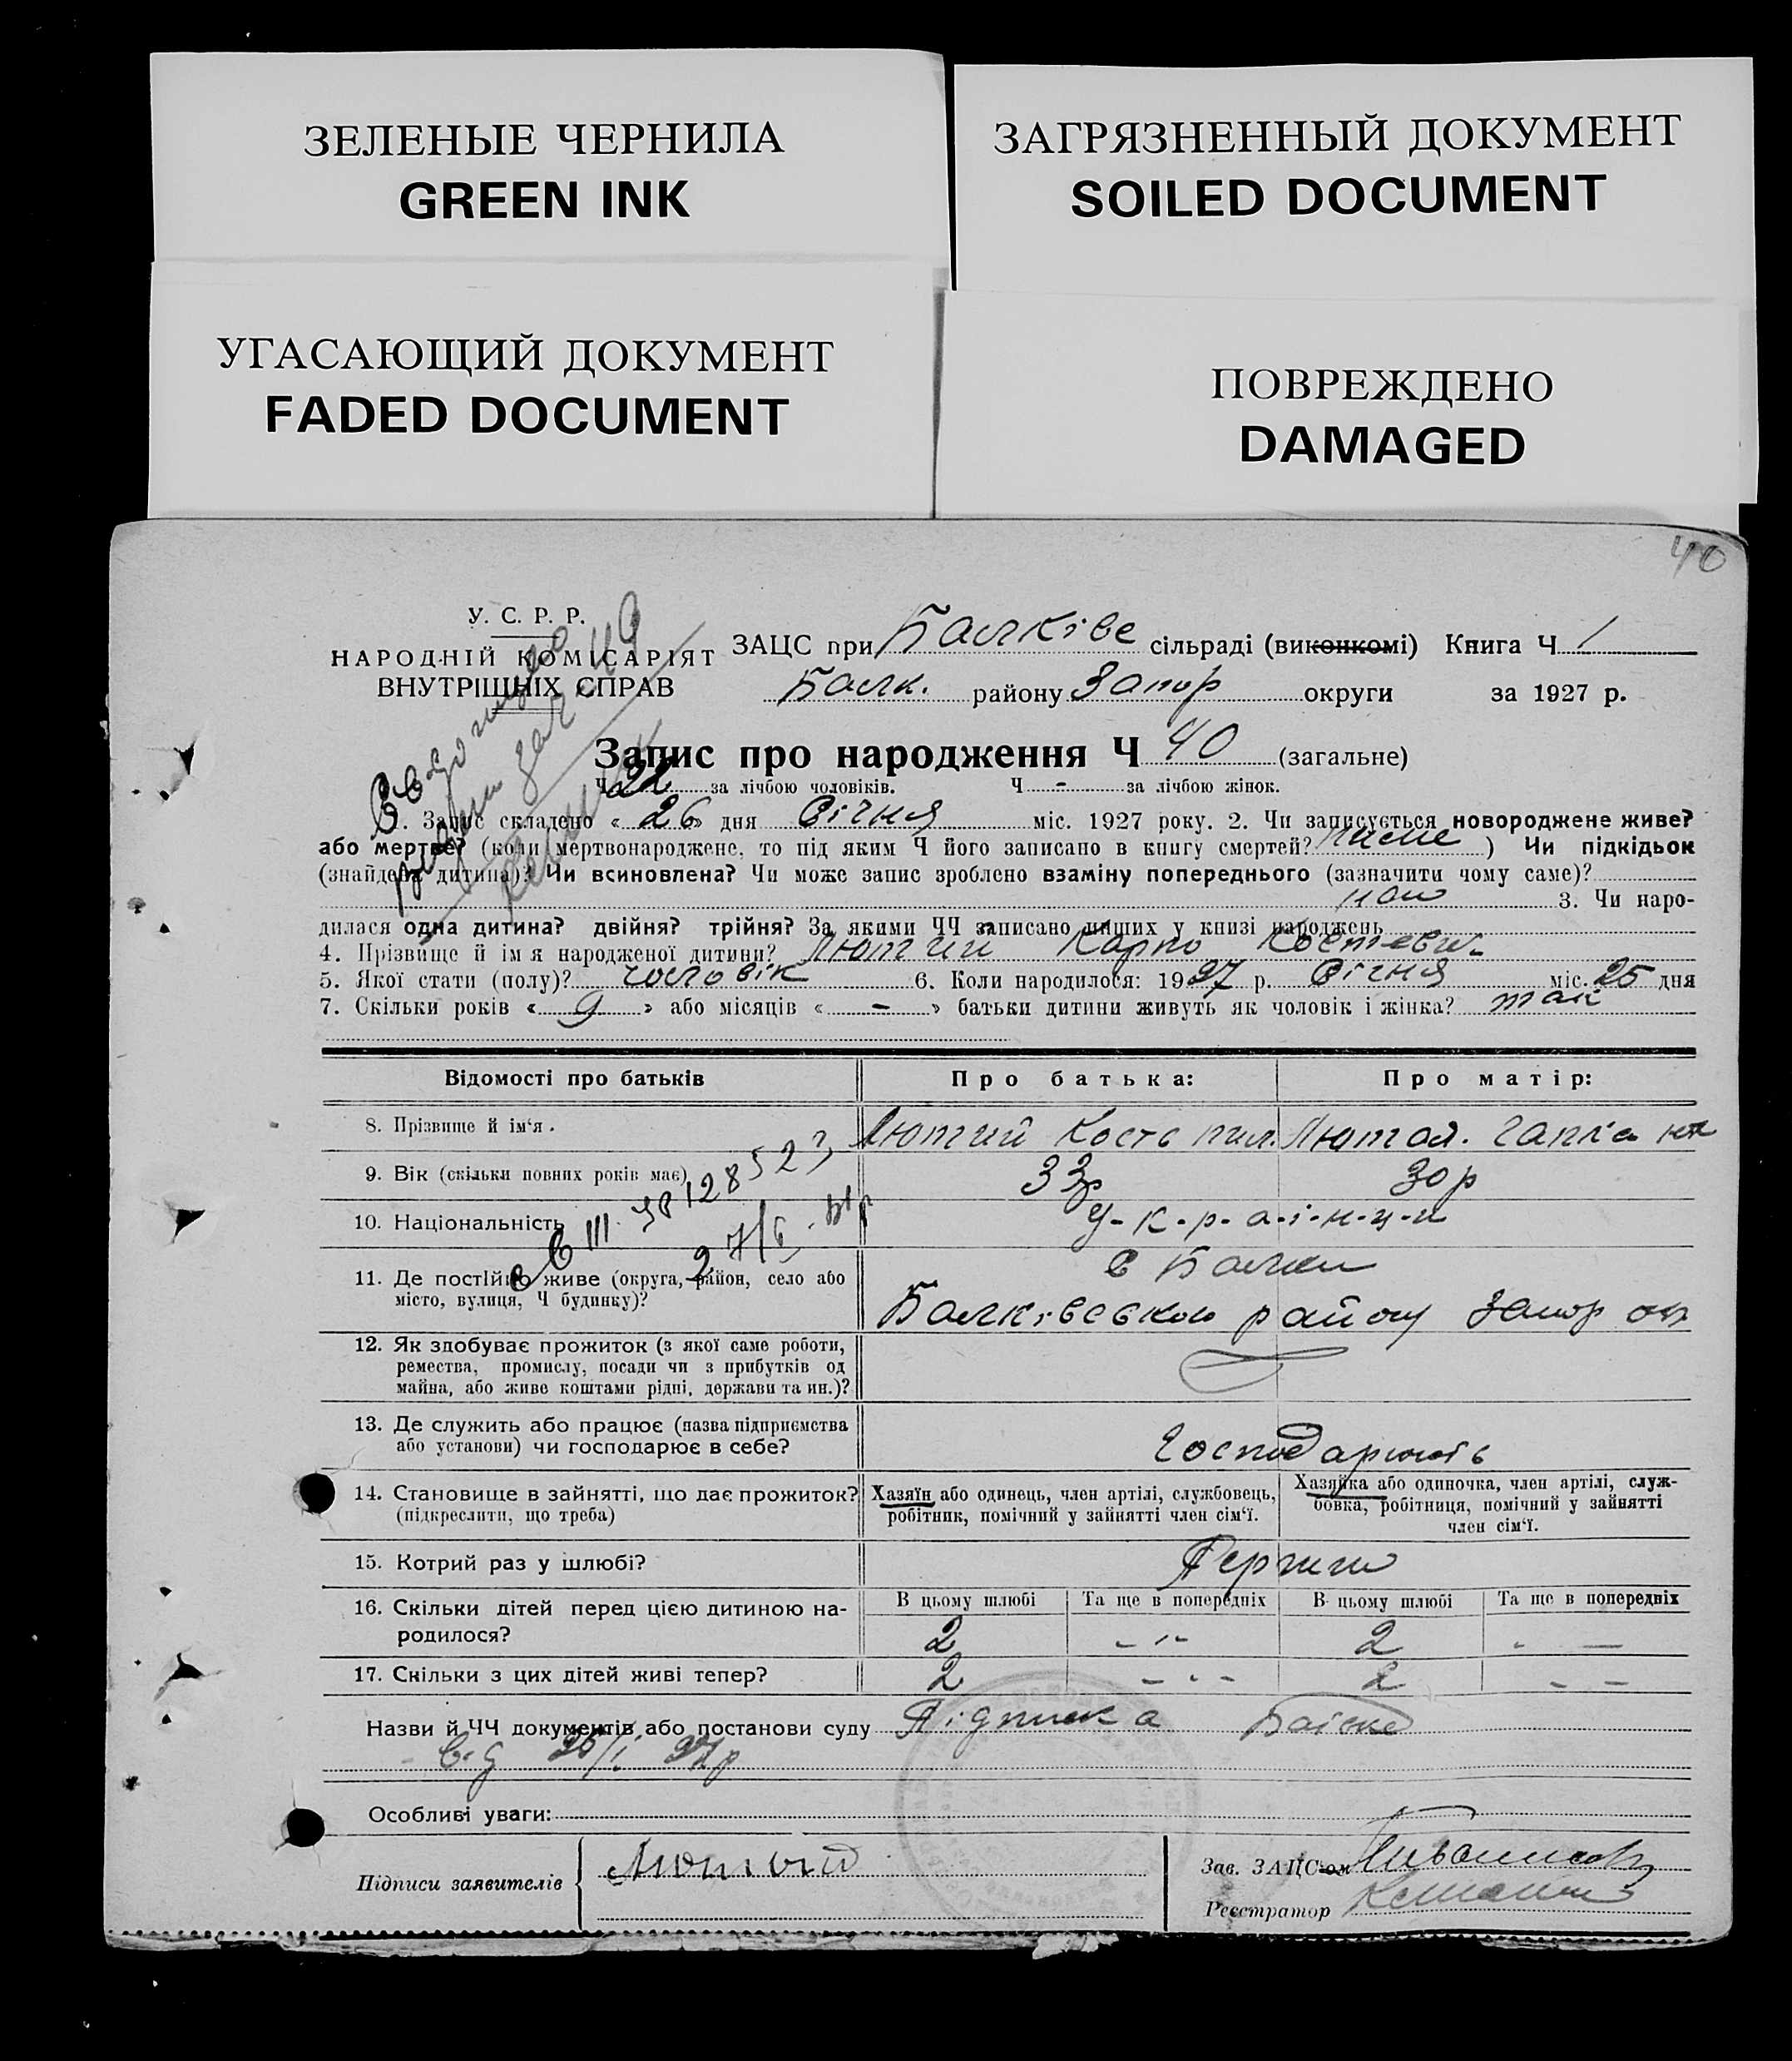 ЗЕЛЕНЫЕ ЧЕРНИЛА
GREEN INK
ЗАГРЯЗНЕННЫЙ ДОКУМЕНТ
SOILED DOCUMENT
УГАСАЮЩИЙ ДОКУМЕНТ
FADED DOCUMENT
ПОВРЕЖДЕНО
DAMAGED
40
У. С. Р. Р.
НАРОДНІЙ КОМІСАРІЯТ
ВНУТРІШНІХ СПРАВ
ЗАЦС при Балківс сільраді (виконкомі) Книга Ч 1
Балк. району Запор округи за 1927 р.
Запис про народження Ч 40 (загальне)
Ч 22 за лічбою чоловіків. Ч - за лічбою жінок.
1. Запис складено « 26 » дня Січня міс. 1927 року. 2. Чи записується новороджене живе?
або мертве? (коли мертвонароджене, то під яким Ч його записано в книгу смертей? ) Чи підкідьок
(знайдена дитина)? Чи всиновлена? Чи може запис зроблено взаміну попереднього (зазначити чому саме)?
3. Чи наро-
дилася одна дитина? двійня? трійня? За якими ЧЧ записано инших у книзі народжень
4. Прізвище й ім'я народженої дитини? Лютий Карпо Костевич
5. Якої стати (полу)? чоловік 6. Коли народилося: 1927 р. Січня міс. 25 дня
7. Скільки років « 9 » або місяців « - » батьки дитини живуть як чоловік і жінка? так
Відомості про батьків Про батька: Про матір:
8. Прізвище й ім'я. Лютий Кость пил. Лютая.
9. Вік (скільки повних років має) 33р 30р
523
38128
10. Національність У-к-р-а-ї-н-ц-и
III
27/6
11. Де постійно живе (округа, район, село або
місто, вулиця, Ч будинку)?
с Балки
Балківського району Запор окр
12. Як здобуває прожиток (з якої саме роботи,
ремества, промислу, посади чи з прибутків од
майна, або живе коштами рідні, держави та ин.)?
13. Де служить або працює (назва підприємства
або установи) чи господарює в себе?
Господарюють
14. Становище в зайнятті, що дає прожиток?
(підкреслити, що треба)
Хазяїн або одинець, член артілі, службовець,
робітник, помічний у зайнятті член сім'ї.
Хазяйка або одиночка, член артілі, служ-
бовка, робітниця, помічний у зайнятті
член сім'ї.
15. Котрий раз у шлюбі? Перший
16. Скільки дітей перед цією дитиною на-
родилося?
В цьому шлюбі Та ще в попередніх В цьому шлюбі Та ще в попередніх
2 - "- 2 - —
17. Скільки з цих дітей живі тепер? 2 - - - 2 - -
Назви й ЧЧ документів або постанови суду Підписка
від 26/I 27р
Особливі уваги:
Підписи заявителів Лютий
Зав. ЗАЦС-ом
Реєстратор